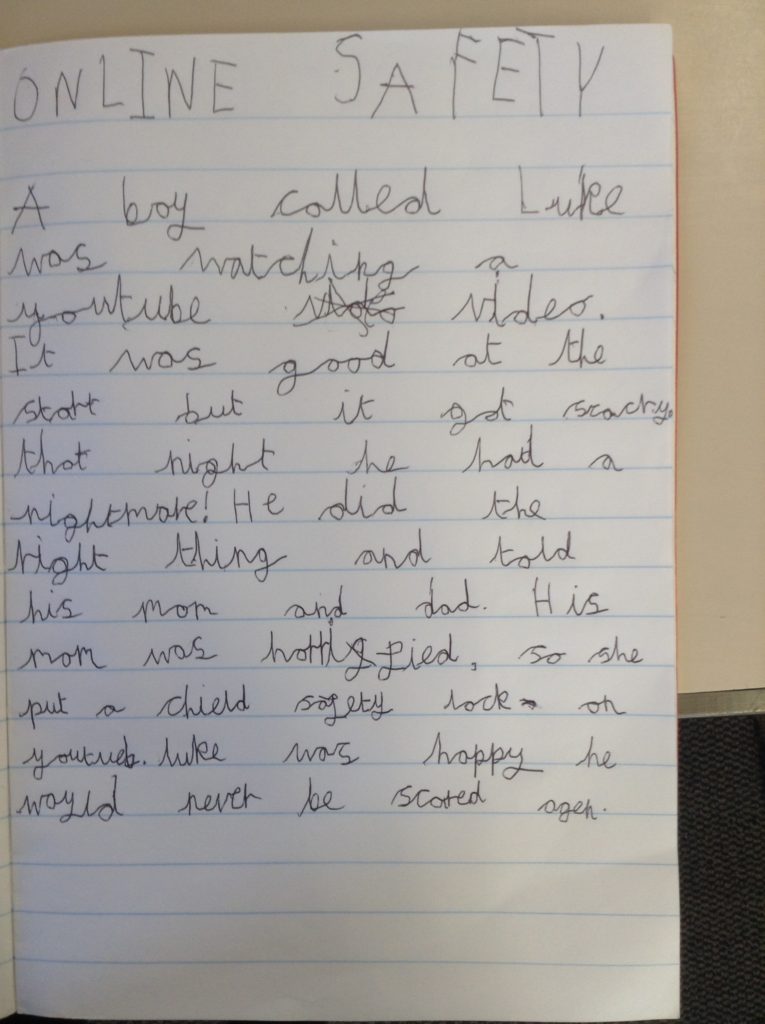 ONLINE SAFETY
A boy called Luke
was watching a
youtube video.
It was good at the
start but it got scarcy.
that night he had a
nightmare! He did the
right thing and told
his mom and dad. His
mom was horrified, so she
put a chield safety lock on
youtueb. luke was happy he
would never be scared agen.